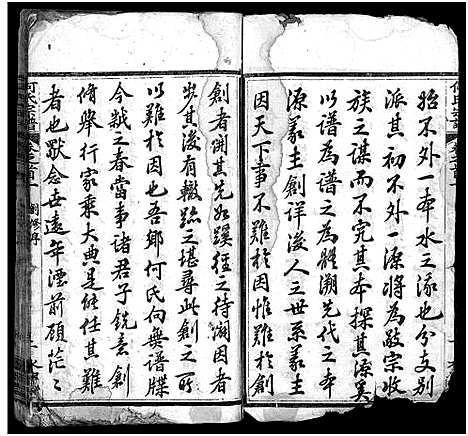 始不外一本水之涿也分支別
派其初不外一源將為敬宗收
族之謀而不究其本探其源奚
以譜為譜之為體溯先代之本
源義主創詳後人之世系義主
因天下事不難於因惟難於創
創者開其先如蹊徑之待闢因者
步其後有轍跡之堪尋此創之所
以難於因也吾鄉何氏向無譜牒
今歲之春當事諸君子銳意創
修舉行家乘大典是能任其難
者也獸念世遠年湮前顧茫〻
何氏宗譜
卷之首一
創修序